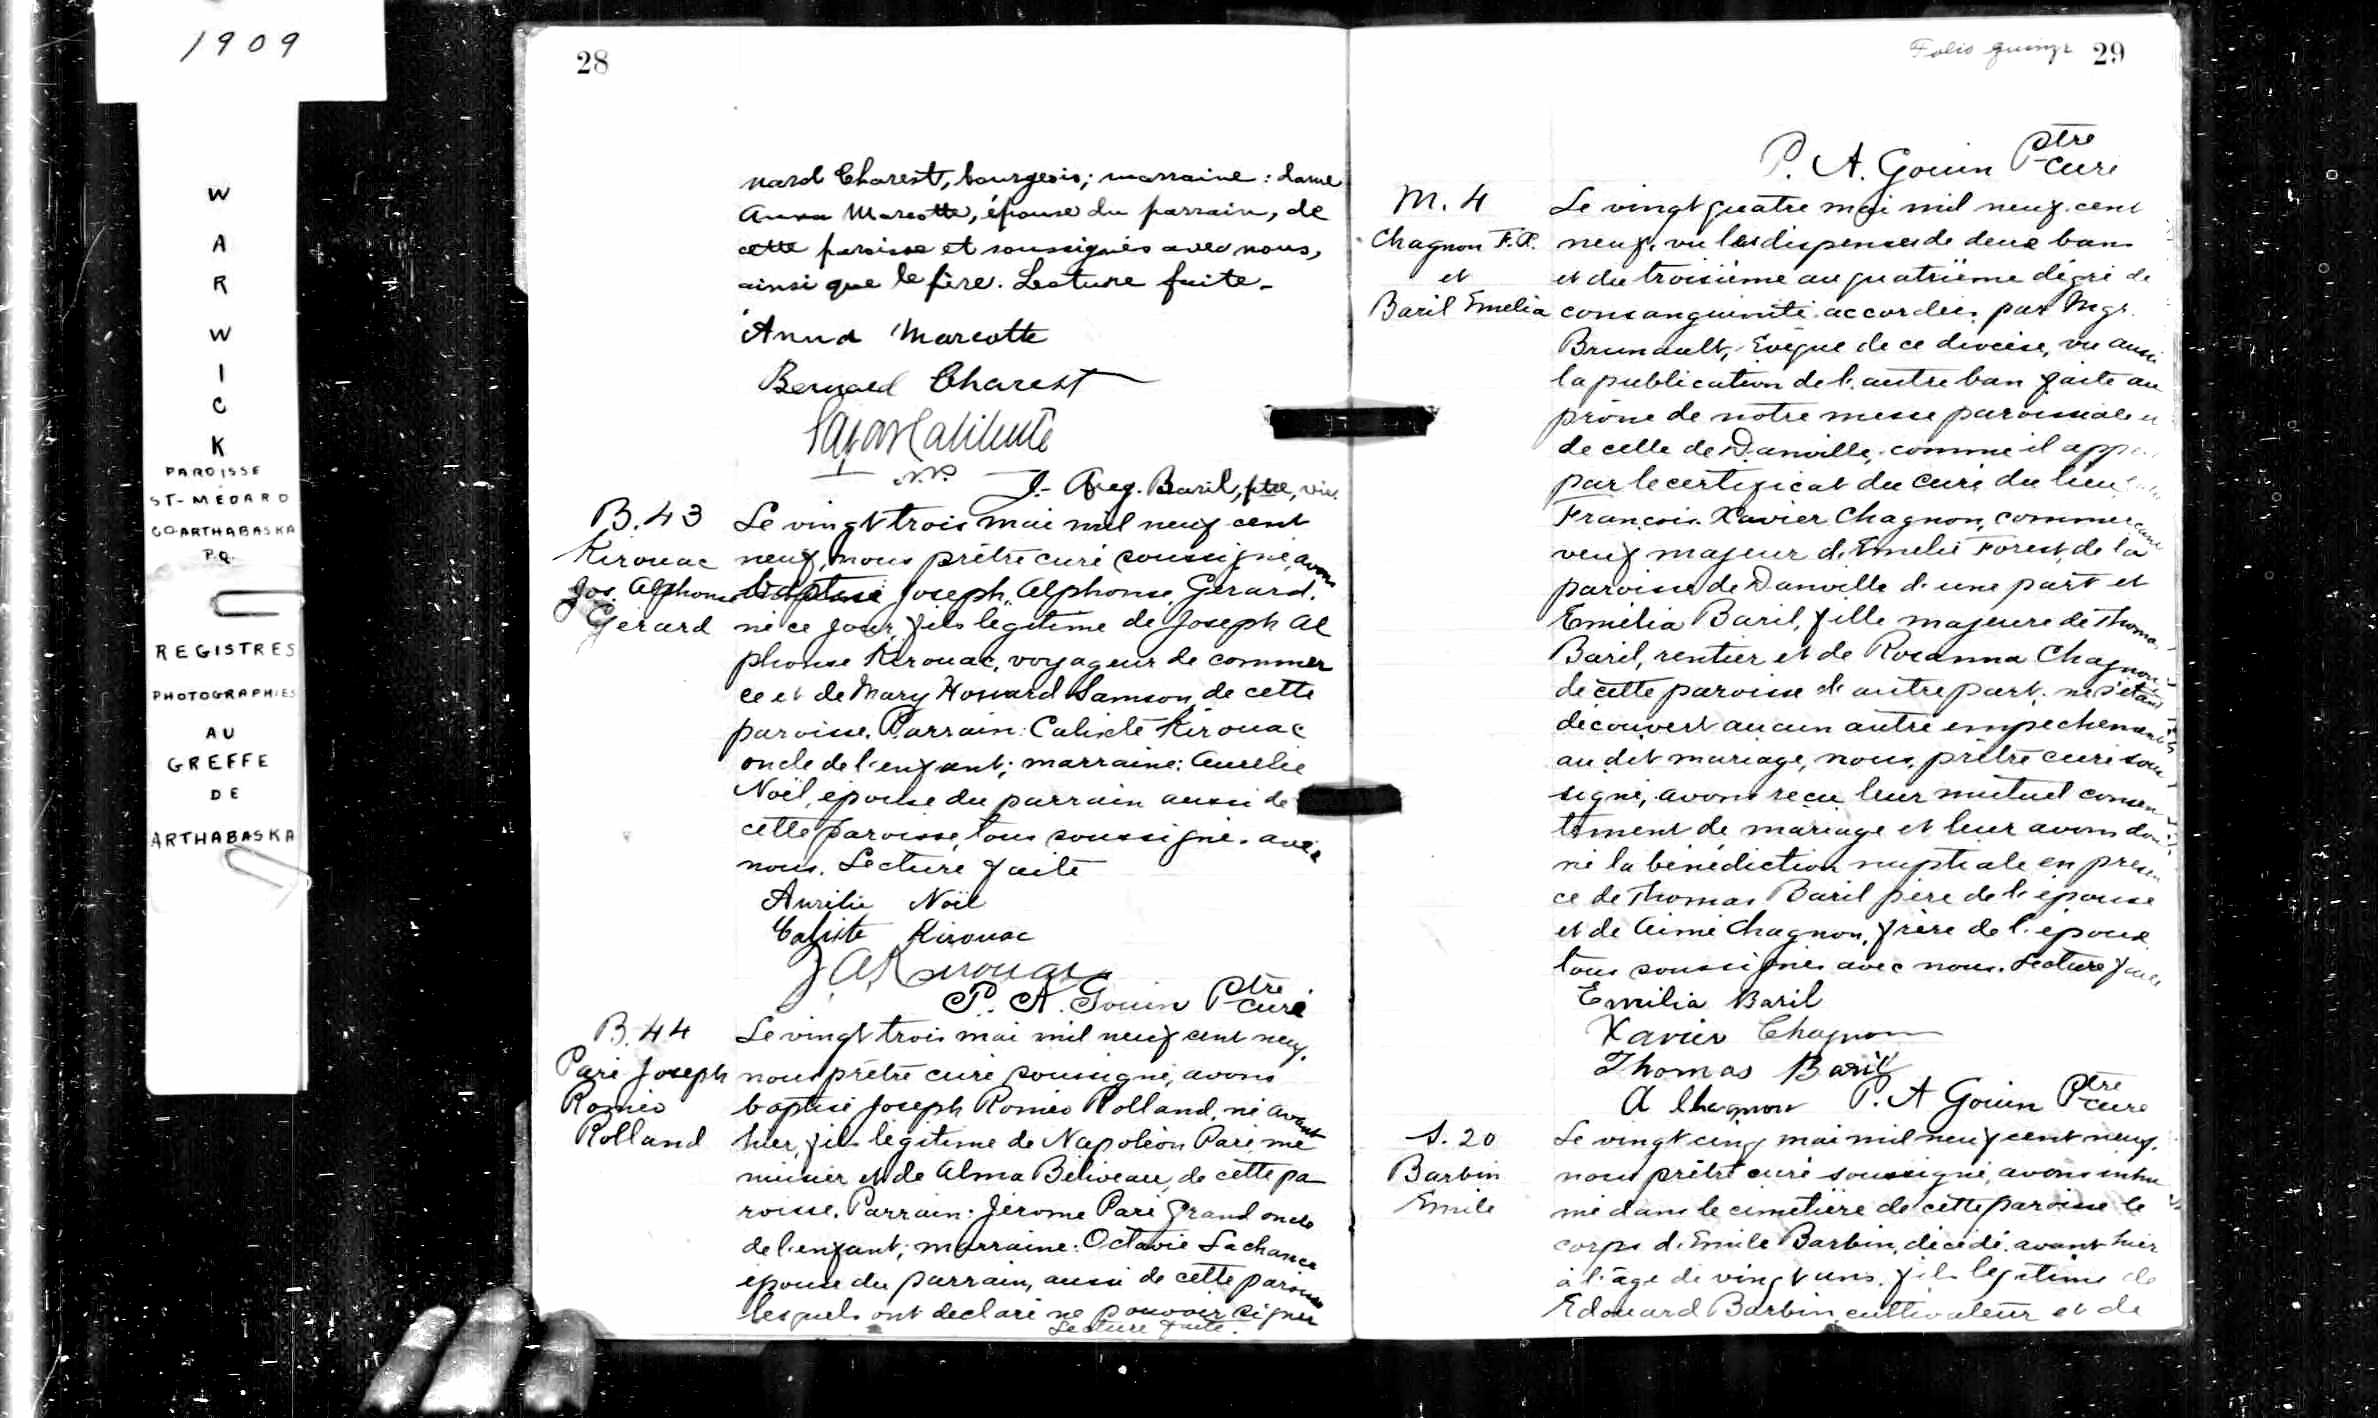 1909
W
A
R
W
I
C
K
PAROISSE
ST-MÉDARD
CO. ARTHABASKA
P.Q.
REGISTRES
PHOTOGRAPHIES
AU
GREFFE
DE
ARTHABASKA
28
nard Charest, bourgeois; marraine: dame
Anna Marcotte, épouse du parrain, de
cette paroisse et soussignés avec nous,
ainsi que le père. Lecture faite.
Anna Marcotte
Bernard Charest
J. Baril, ptre, vic.
B. 43
Kirouac
Jos. Alphonse
Gérard
Le vingt trois mai mil neuf cent
neuf, nous prêtre curé soussigné, avons
baptisé Joseph Alphonse Gérard,
né ce jour, fils légitime de Joseph Al
phonse Kirouac, voyageur de commer
ce et de Mary Howard Samson, de cette
paroisse. Parrain: Calixte Kirouac
oncle de l'enfant; marraine: Aurélie
Noël, épouse du parrain aussi de
cette paroisse, tous soussignés avec
nous. Lecture faite
Aurélie Noël
Calixte Kirouac
J A Kirouac
P. A. Gouin Ptre curé
B. 44
Paré Joseph
Roméo
Rolland
Le vingt trois mai mil neuf cent neuf,
nous prêtre curé soussigné, avons
baptisé Joseph Roméo Rolland, né avant
hier, fils légitime de Napoléon Paré me
nuisier et de Alma Béliveau, de cette pa
roisse. Parrain: Jérôme Paré grand oncle
de l'enfant; marraine: Octavie Lachance
épouse du parrain, aussi de cette paroisse
lesquels ont déclaré ne pouvoir signer
Lecture faite.
Folio quinze 29
P. A. Gouin Ptre curé
M. 4
Chagnon F.X.
et
Baril Emelia
Le vingt quatre mai mil neuf cent
neuf, vu les dispenses de deux bans
et du troisième au quatrième dégré de
consanguinité accordées par Mgr.
Brunault, Evêque de ce diocèse, vu aussi
la publication de l'autre ban faite au
prône de notre messe paroissiale et
de celle de Danville, comme il
par le certificat du curé du lieu
François Xavier Chagnon, commerçant
veuf majeur d'Emelie Forest, de la
paroisse de Danville d'une part et
Emélia Baril, fille majeure de Thomas
Baril, rentier et de Rosanna Chagnon
de cette paroisse d'autre part, ne s'étant
découvert aucun autre empêchement
au dit mariage, nous, prêtre curé sous
signé, avons reçu leur mutuel consen
tement de mariage et leur avons don
né la bénédiction nuptiale en présen
ce de Thomas Baril père de l'épouse
et de Aimé Chagnon, frère de l'époux
tous soussignés avec nous. Lecture faite
Emilia Baril
Xavier Chagnon
Thomas Baril
A Chagnon P. A Gouin Ptre curé
S. 20
Barbin
Emile
Le vingt cinq mai mil neuf cent neuf,
nous prêtre curé soussigné, avons inhu
mé dans le cimetière de cette paroisse le
corps d'Emile Barbin, décédé avant hier
à l'âge de vingt ans, fils légitime de
Edouard Barbin, cultivateur et de